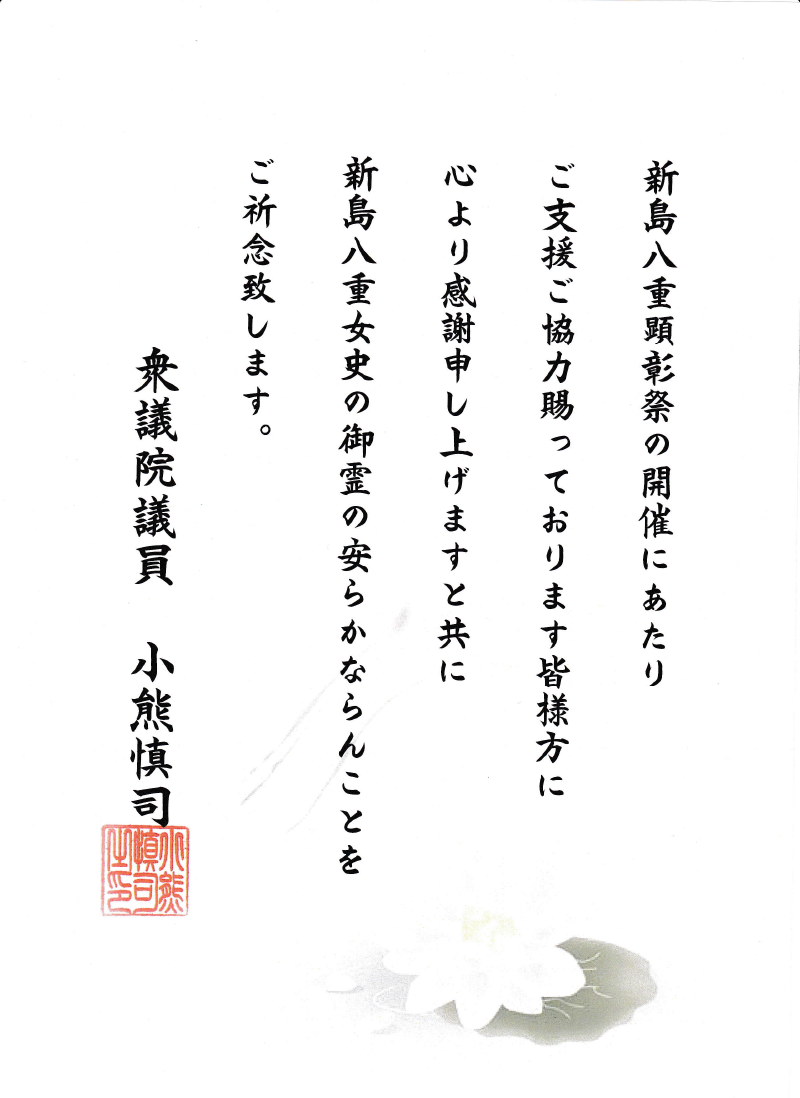 新島八重顕彰祭の開催にあたり
ご支援ご協力賜っております皆様方に
心より感謝申し上げますと共に
新島八重女史の御霊の安らかならんことを
ご祈念致します。
衆議院議員　小熊慎司
小熊
慎司
之印